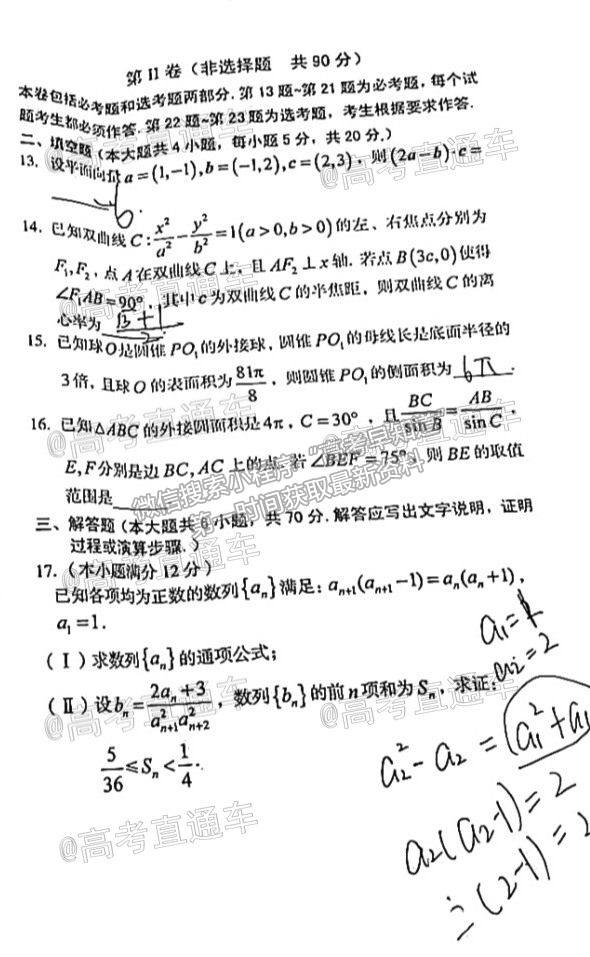 第 II 卷（非选择题　共 90 分）
本卷包括必考题和选考题两部分. 第 13 题~第 21 题为必考题，每个试
题考生都必须作答. 第 22 题~第 23 题为选考题，考生根据要求作答.
二、填空题（本大题共 4 小题，每小题 5 分，共 20 分.）
13. 设平面向量 a=(1,-1), b=(-1,2), c=(2,3)，则 (2a-b)·c=
6.
14. 已知双曲线 C: x²/a² - y²/b² = 1(a>0,b>0) 的左、右焦点分别为
F₁,F₂，点 A 在双曲线 C 上，且 AF₂⊥x 轴. 若点 B(3c,0) 使得
∠F₁AB=90°，其中 c 为双曲线 C 的半焦距，则双曲线 C 的离
心率为 (√3+1)/2
15. 已知球 O 是圆锥 PO₁ 的外接球，圆锥 PO₁ 的母线长是底面半径的
3 倍，且球 O 的表面积为 81π/8，则圆锥 PO₁ 的侧面积为 6π.
16. 已知△ABC 的外接圆面积是 4π，C=30°，且 BC/sin B = AB/sin C，
E,F 分别是边 BC, AC 上的点. 若 ∠BEF=75°，则 BE 的取值
范围是
三、解答题（本大题共 6 小题，共 70 分. 解答应写出文字说明，证明
过程或演算步骤.）
17.（本小题满分 12 分）
已知各项均为正数的数列{aₙ}满足：aₙ₊₁(aₙ₊₁-1)=aₙ(aₙ+1)，
a₁=1.
（Ⅰ）求数列{aₙ}的通项公式；
（Ⅱ）设 bₙ=(2aₙ+3)/(a²ₙ₊₁a²ₙ₊₂)，数列{bₙ}的前 n 项和为 Sₙ，求证：
5/36≤Sₙ<1/4.
a₁=1
a₂=2
a₂²-a₂=(a₁²+a₁
a₂(a₂-1)=2
(2-1)=2
@高考直通车
@高考直通车
@高考直通车
@高考直通车
微信搜索小程序“高考早知道”
第一时间获取最新资料
@高考直通车
@高考直通车
@高考直通车